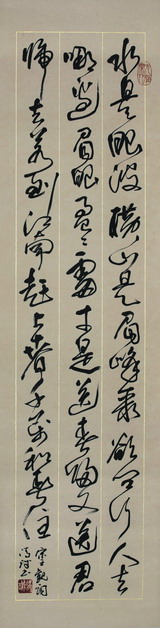 水是眼波橫山是眉峰聚欲问行人去
哪边眉眼盈盈處才是送春歸又送君
歸去若到江南赶上春千萬和春住
宋王觀詞